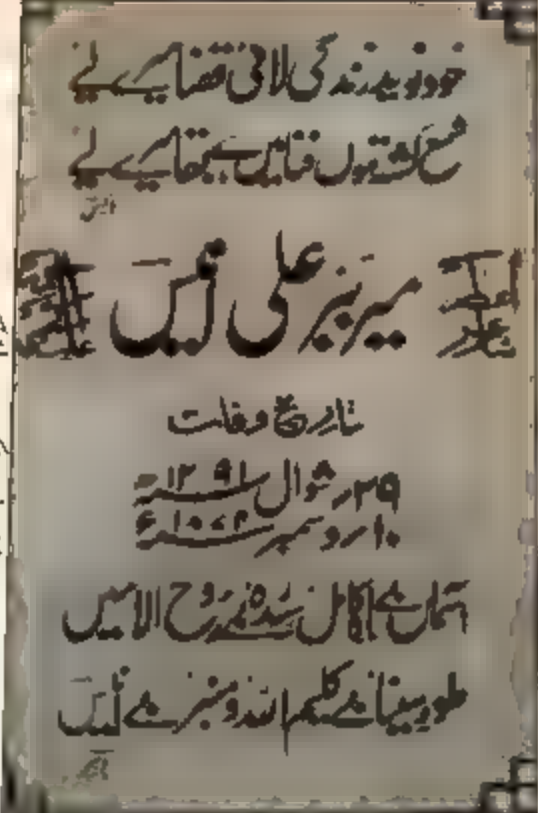 خود نوید زندگی لائی قضا میرے لیے
شمع کشتہ ہوں فنا میں ہے بقا میرے لیے
انیس
میر ببر علی انیس
تاریخ وفات
۲۹ر شوال ۱۲۹۱ھ
۱۰ر دسمبر ۱۸۷۴ء
آسماں بے ماہ کامل سدرہ بے روح الامیں
طور سینا بے کلیم اللہ و منبر بے انیس